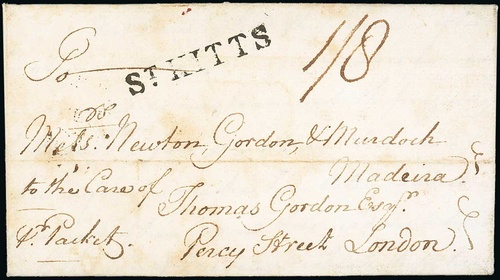 To
ST. KITTS
1/8
Messrs. Newton, Gordon, & Murdoch
Madeira
to the Care of
Thomas Gordon Esqr.
pr. Packet.
Percy Street London